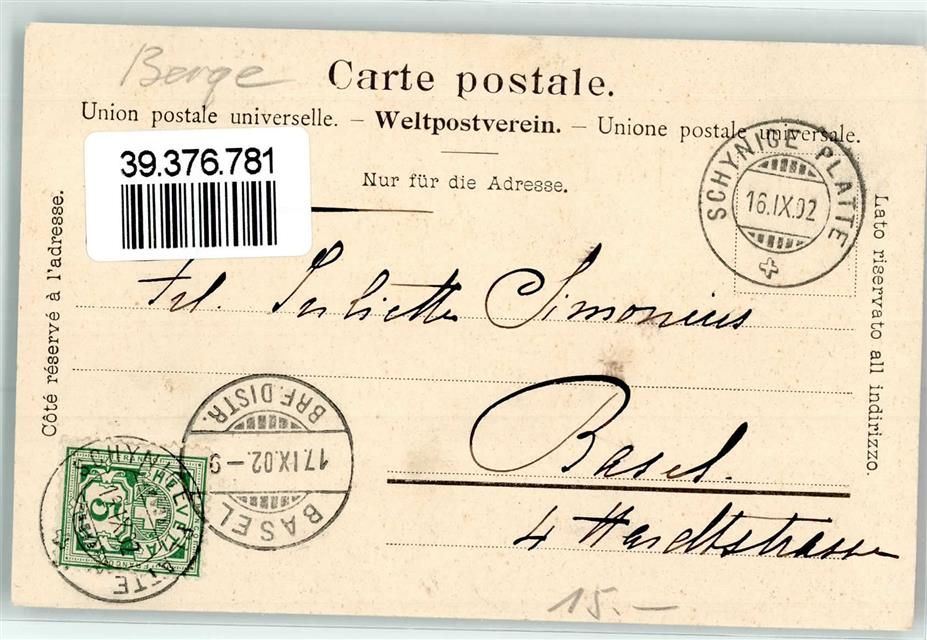 Berge
Carte postale.
Union postale universelle. – Weltpostverein. – Unione postale universale.
39.376.781
Nur für die Adresse.
SCHYNIGE PLATTE
16.IX.02
Côté réservé à l'adresse.
Lato riservato all indirizzo.
Frl. Juliette Simonius
Basel.
4 Hardtstrasse
BRF.DISTR.
17.IX.02.–9
BASEL
HELVETIA
5
15.–